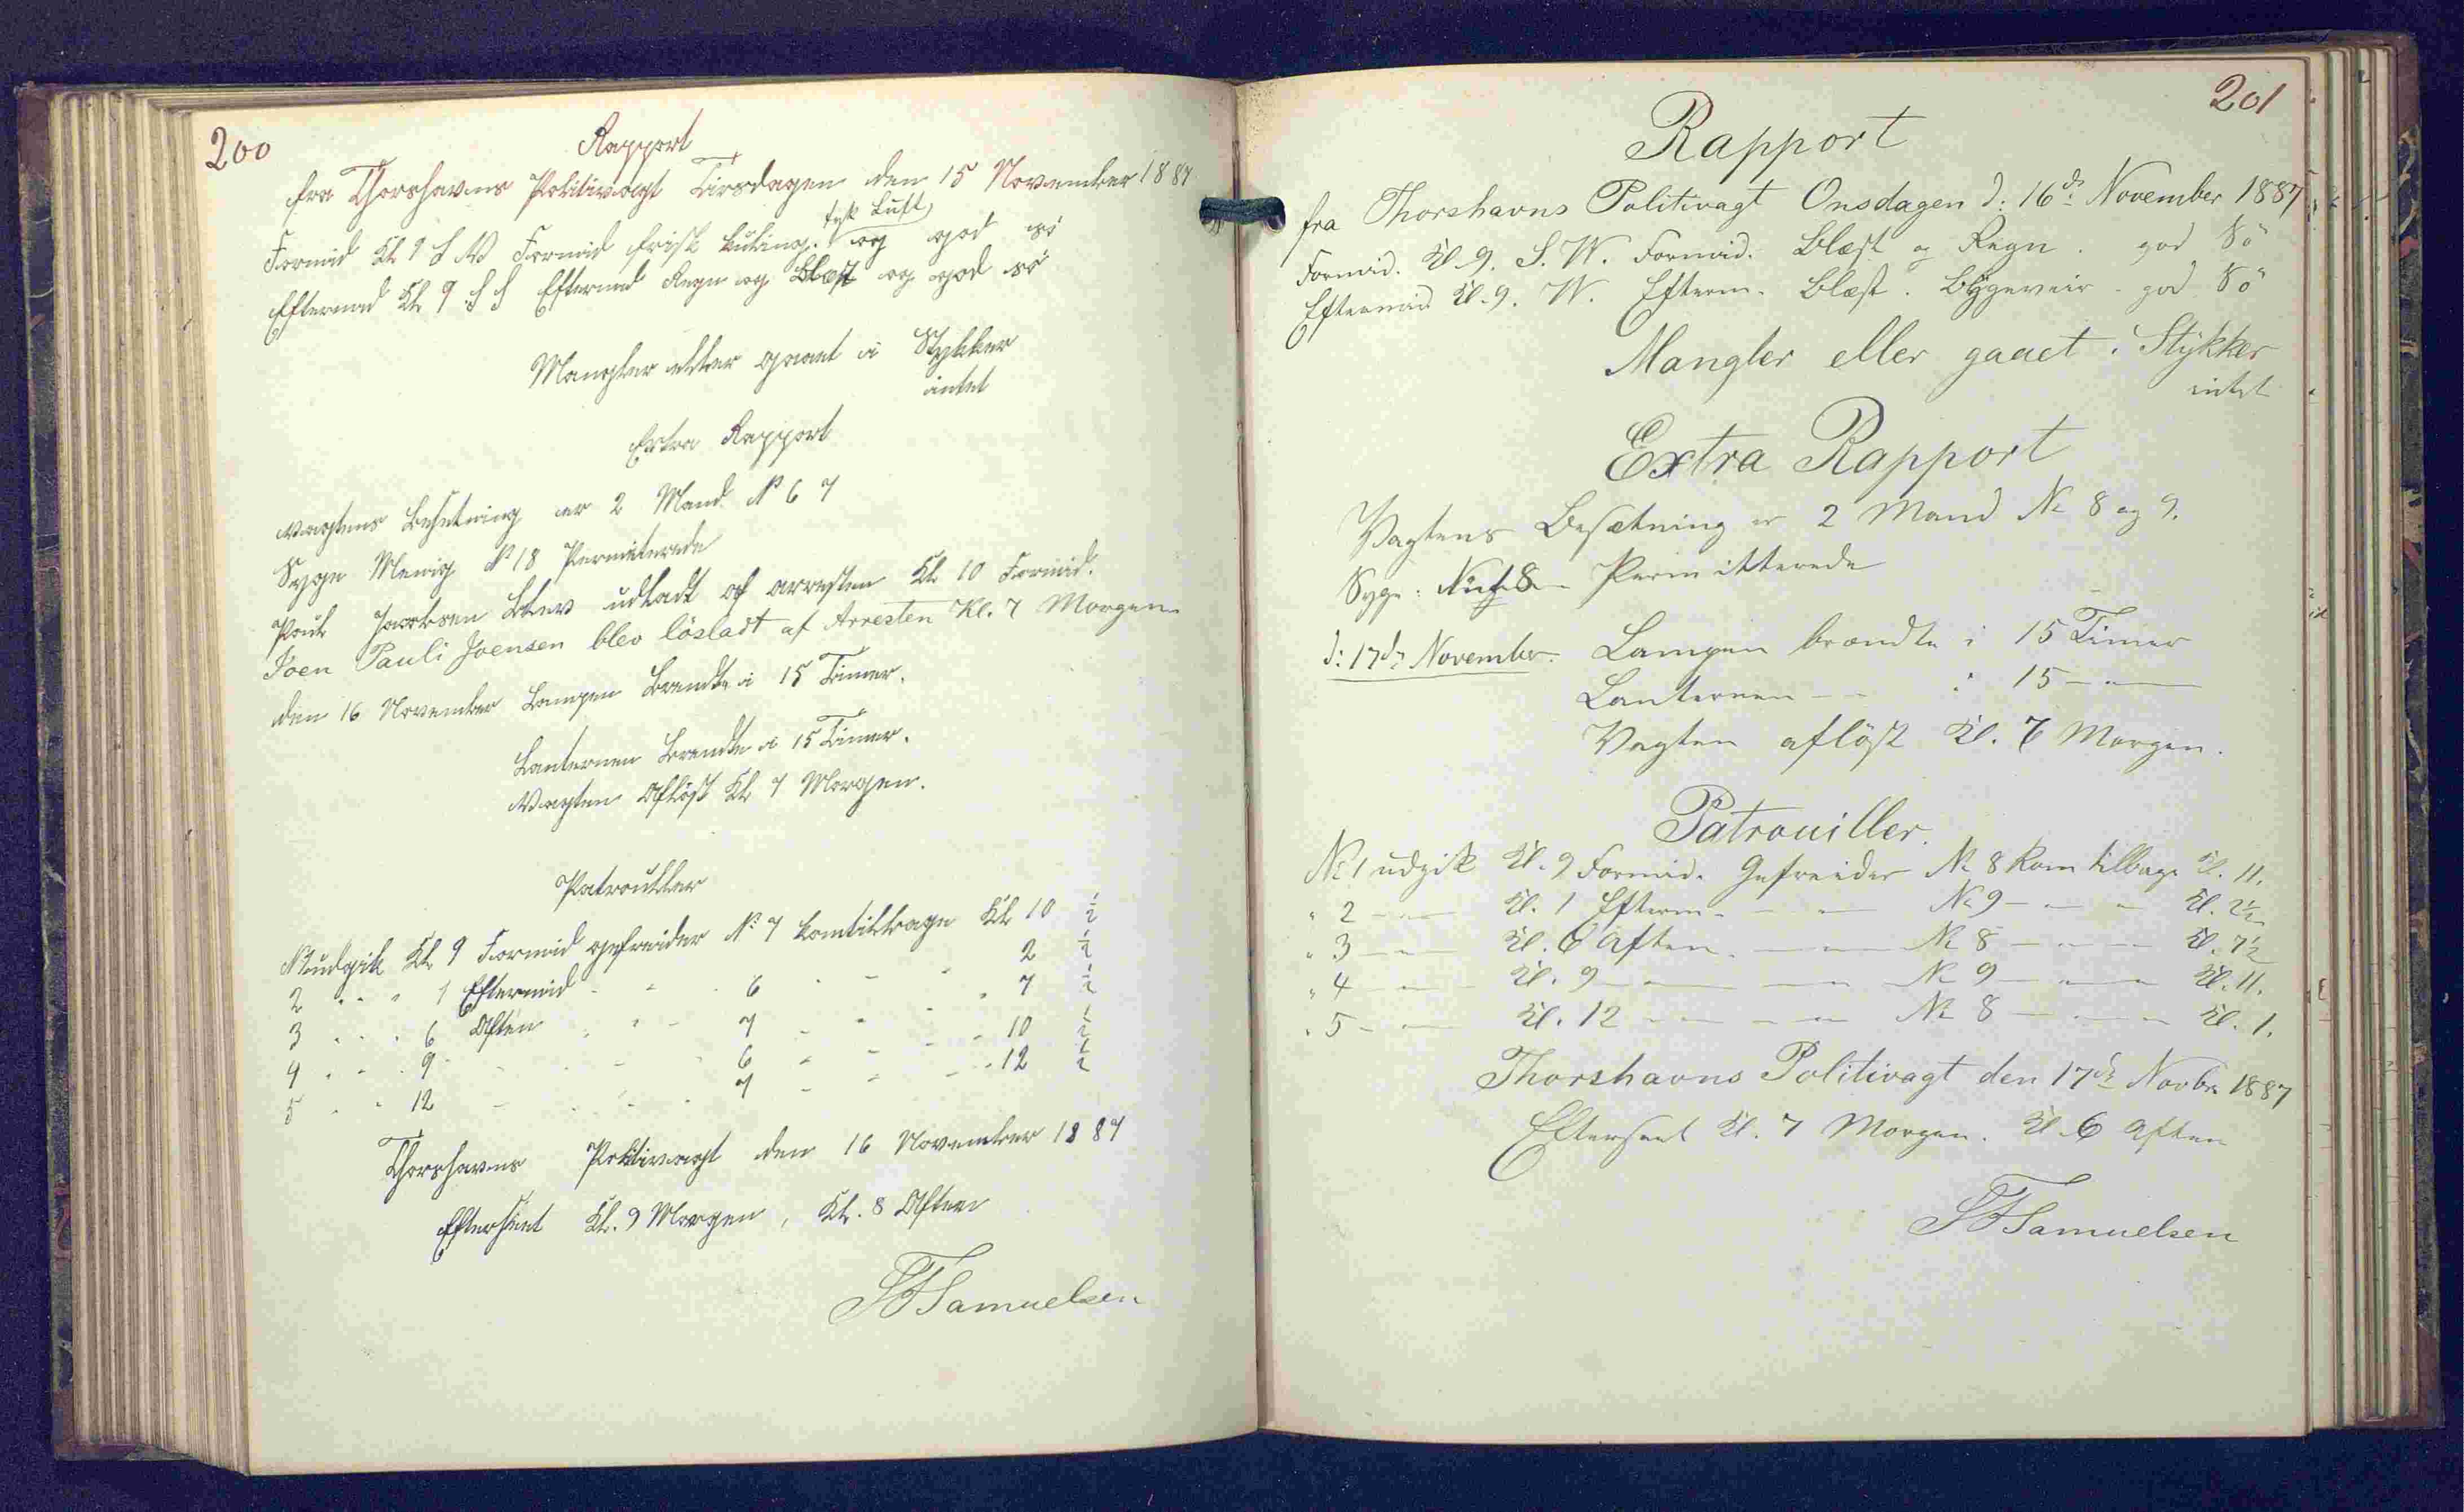 200
Rapport
fra Thorshavns Politivagt Tirsdagen den 15 November 1887
tyk Luft
Formid Kl 9 S W Formid frisk kuling. og god sö
Eftermid Kl 9 S S Eftermid Regn og Blæst og god sö
Mangler eller gaaet i Stykker
intet
Extra Rapport
Vagtens Besetning er 2 Mand No 6 7
Syge Menig No 18 Permiterede
Poul Jacobsen blev udladt af arresten Kl 10 Formid.
Joen Pauli Joensen blev lösladt af Arresten Kl. 7 Morgen
den 16 November Lampen Brendte i 15 Timer.
Lanternen Brendte i 15 Timer.
Vagten Aflöst Kl 7 Morgen.
Patrouller
N1 udgik Kl 9 Formid gefreider No 7 komtilbage Kl 10 1/2
2 " " " 1 Eftermid - - - 6 - - - 2 1/2
3 " " " 6 Aften - - - 7 - - - 7 1/2
4 " " " 9 - - - 6 - - - 10 1/2
5 " " 12 - - - 7 - - - 12 1/2
Thorshavns Politivagt den 16 November 1887
Efterseet Kl. 9 Morgen, Kl. 8 Aften
Samuelsen
201
Rapport
fra Thorshavns Politivagt Onsdagen d: 16de November 1887
Formid. Kl. 9. S. W. Formid. Blæst og Regn. god Sö
Eftermid Kl. 9. W. Efterm. Blæst. Bygeveir - god Sö
Mangler eller gaaet i Stykker
intet
Extra Rapport
Vagtens Besætning er 2 Mand No 8 og 9.
Syge: Permitterede
d: 17de November. Lampen brændte i 15 Timer
Lanternen - - i 15 - - -
Vagten aflöst Kl. 7 Morgen.
Patrouiller.
No 1 udgik Kl. 9 Formid. Gefreider No 8 kom tilbage Kl. 11.
" 2 - - Kl. 1 Efterm. - - - No 9 - - - Kl. 2½
" 3 - - Kl. 6 Aften. - - - No 8 - - - Kl. 7½
" 4 - - Kl. 9 - - - No 9 - - - Kl. 11.
" 5 - - Kl. 12 - - - No 8 - - - Kl. 1.
Thorshavns Politivagt den 17de Novbr. 1887
Efterseet Kl. 7 Morgen. Kl. 6 Aften
Samuelsen